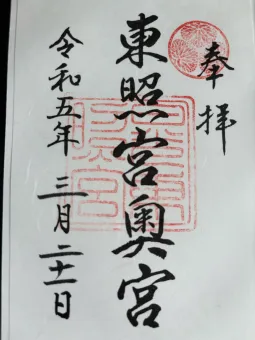 奉拝
東照宮奥宮
令和五年 三月二十一日